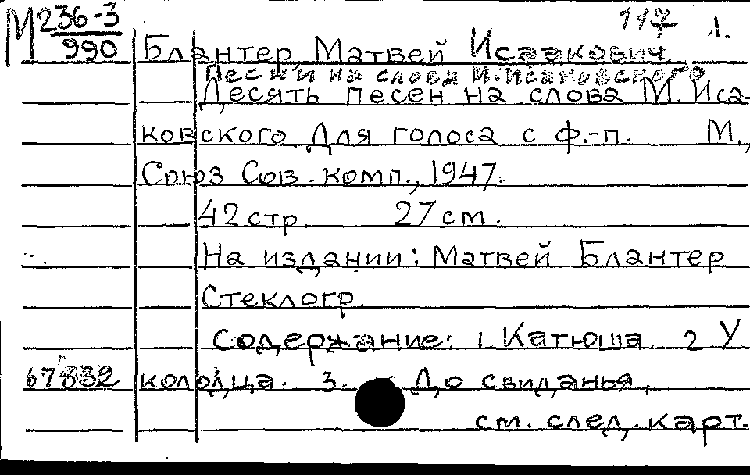 М 236-3 117 1.
990 Блантер, Матвей Исаакович
Песни на слова М. Исаковского
Десять песен на слова М. Иса-
ковского Для голоса с ф.-п. М.,
Союз Сов. комп., 1947.
42 стр. 27 см.
На издании: Матвей Блантер
Стеклогр.
Содержание: 1. Катюша. 2 У
67832 колодца. 3. До свиданья,
см. след, карт.